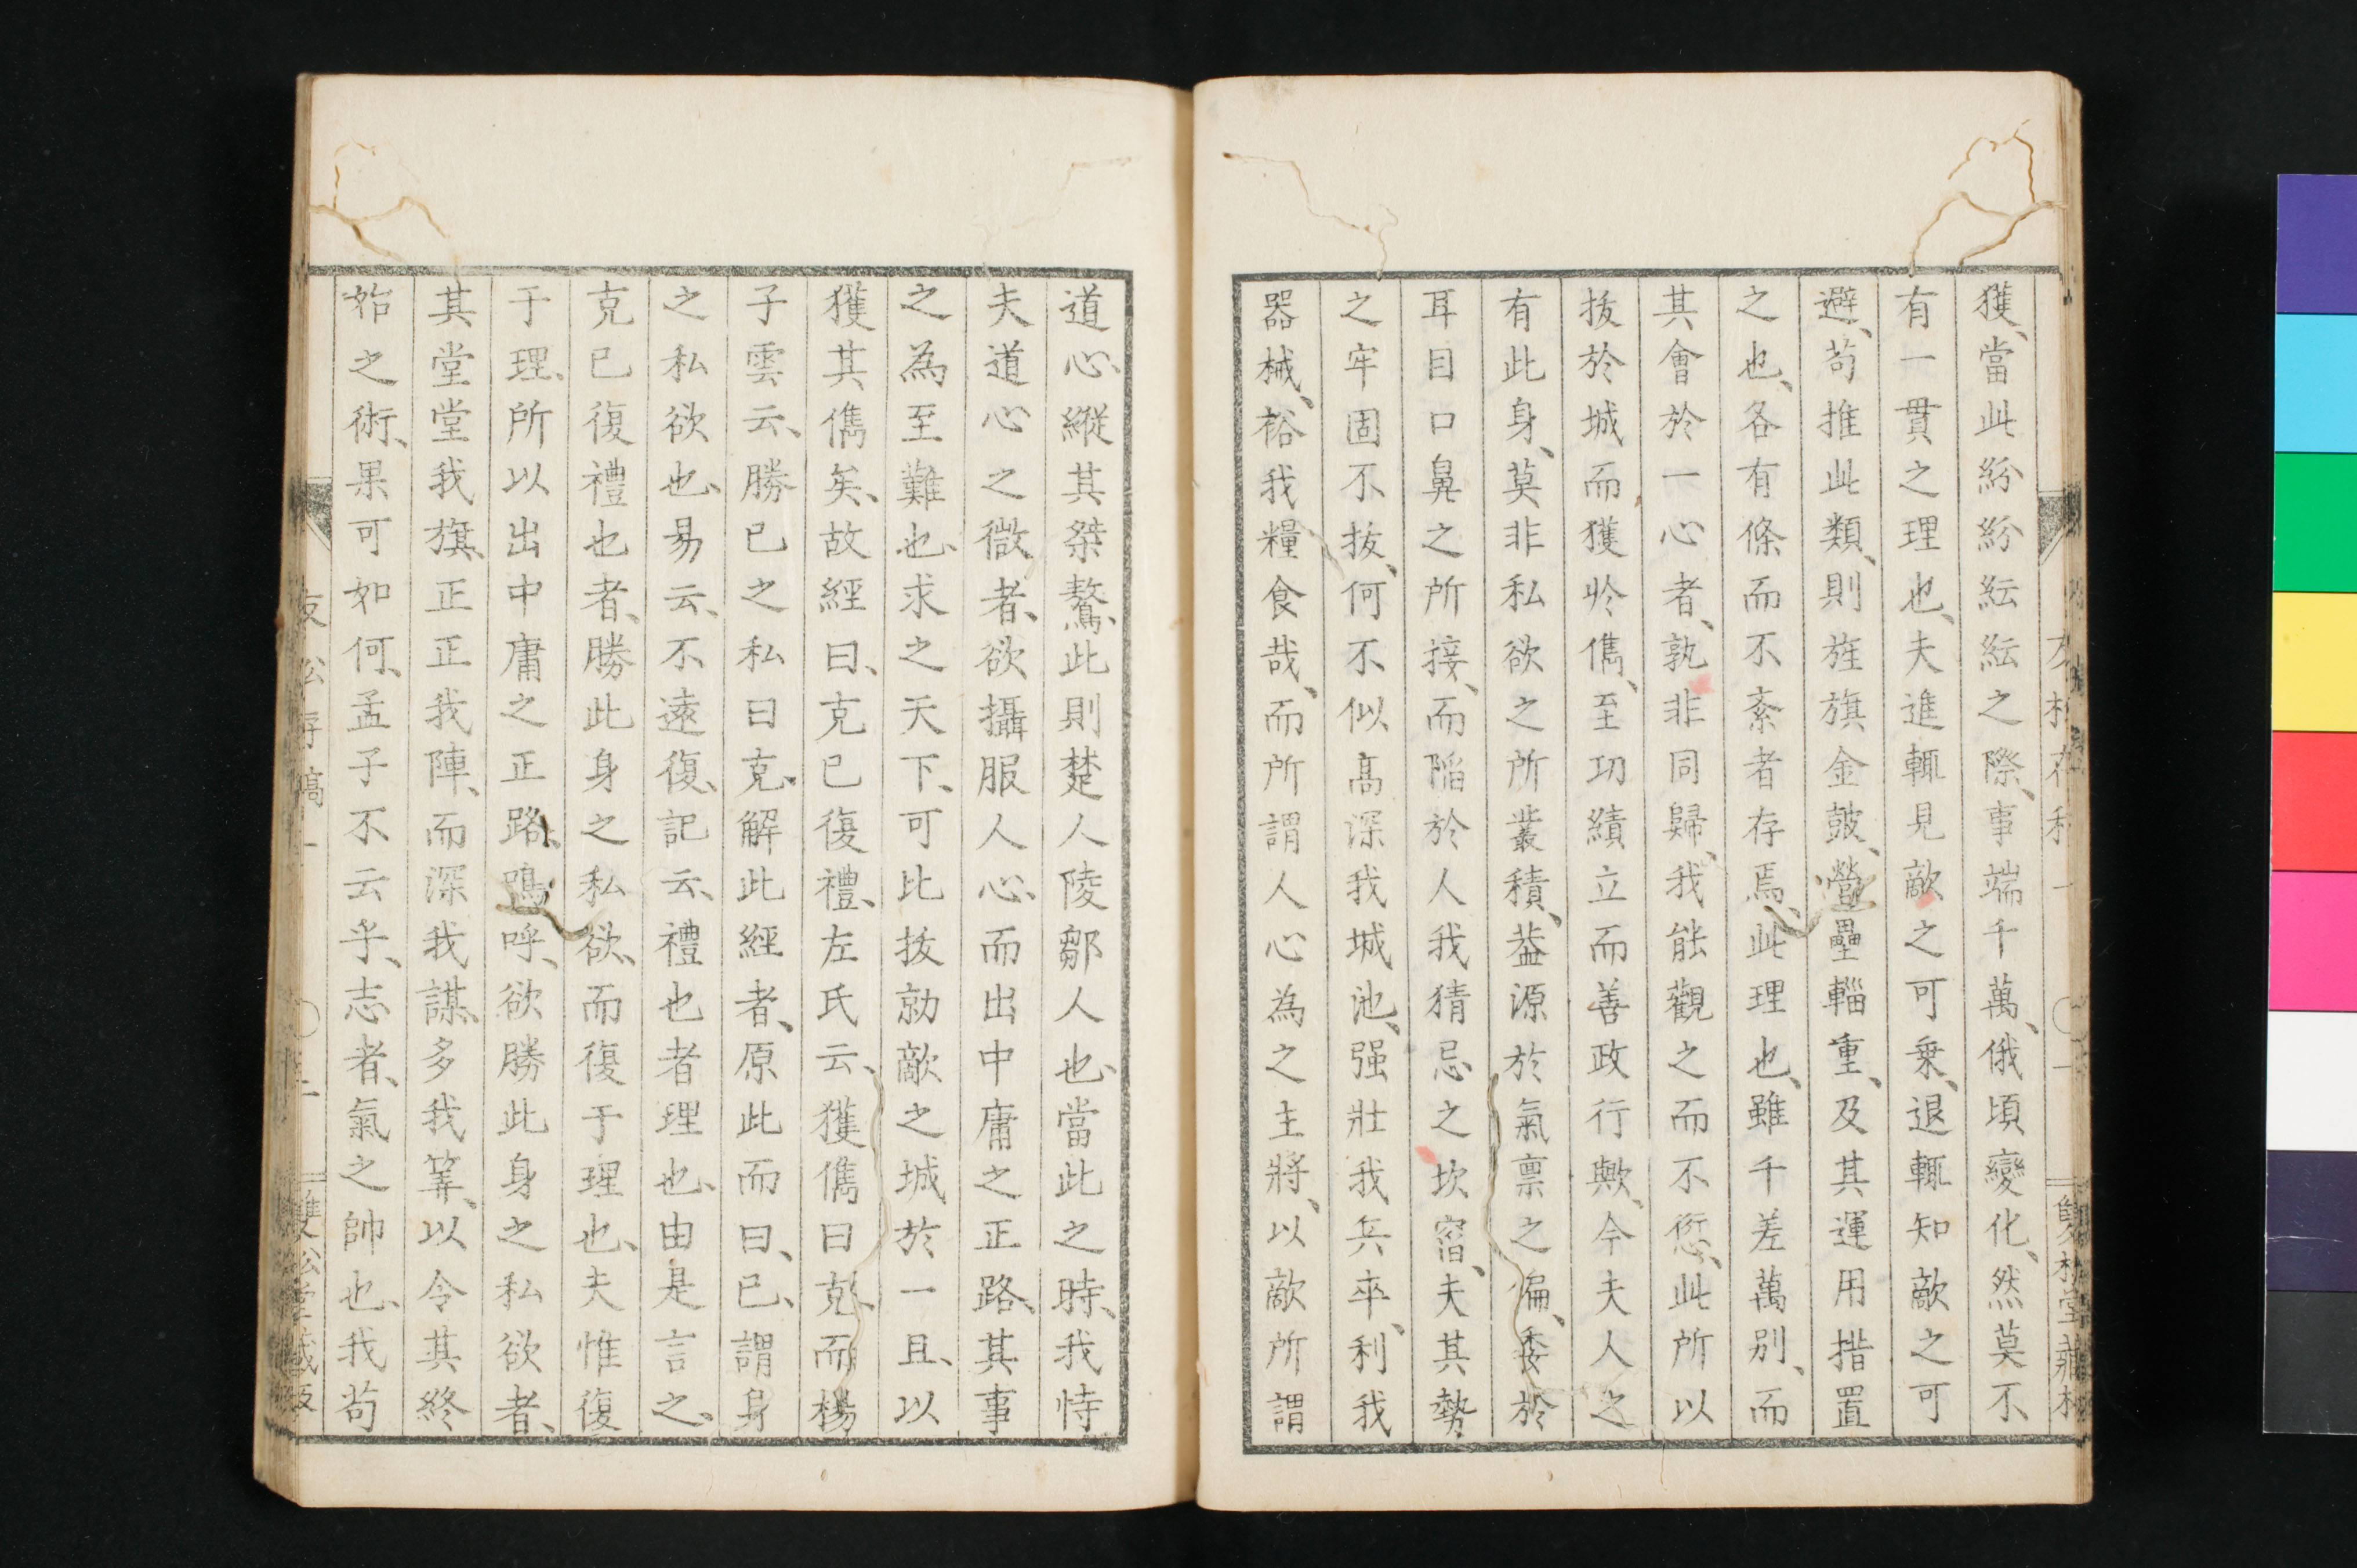 獲、當此紛紛紜紜之際、事端千萬、俄頃變化、然莫不
有一貫之理也、夫進輒見敵之可乗、退輒知敵之可
避、苟推此類、則旌旗金鼓、營壘輜重、及其運用措置
之也、各有條而不紊者存焉、此理也、雖千差萬别、而
其會於一心者、孰非同歸、我能觀之而不愆、此所以
拔於城而獲於儁、至功績立而善政行歟、今夫人之
有此身、莫非私欲之所叢積、葢源於氣禀之偏、委於
耳目口鼻之所接、而陷於人我猜忌之坎窞、夫其勢
之牢固不拔、何不似髙深我城池、强壯我兵卒、利我
器械、裕我糧食哉、而所謂人心為之主將、以敵所謂
道心、縱其桀驁、此則楚人陵鄒人也、當此之時、我恃
夫道心之微者、欲攝服人心、而出中庸之正路、其事
之為至難也、求之天下、可比拔勍敵之城於一且、以
獲其儁矣、故經曰、克已復禮、左氏云、獲儁曰克、而楊
子雲云、勝已之私曰克、解此經者、原此而曰、已、謂身
之私欲也、易云、不遠復、記云、禮也者理也、由是言之、
克已復禮也者、勝此身之私欲、而復于理也、夫惟復
于理、所以出中庸之正路、嗚呼、欲勝此身之私欲者、
其堂堂我旗、正正我陣、而深我謀、多我筭、以令其終
始之術、果可如何、孟子不云乎、志者、氣之帥也、我苟
友松存稿 一
雙松堂藏板